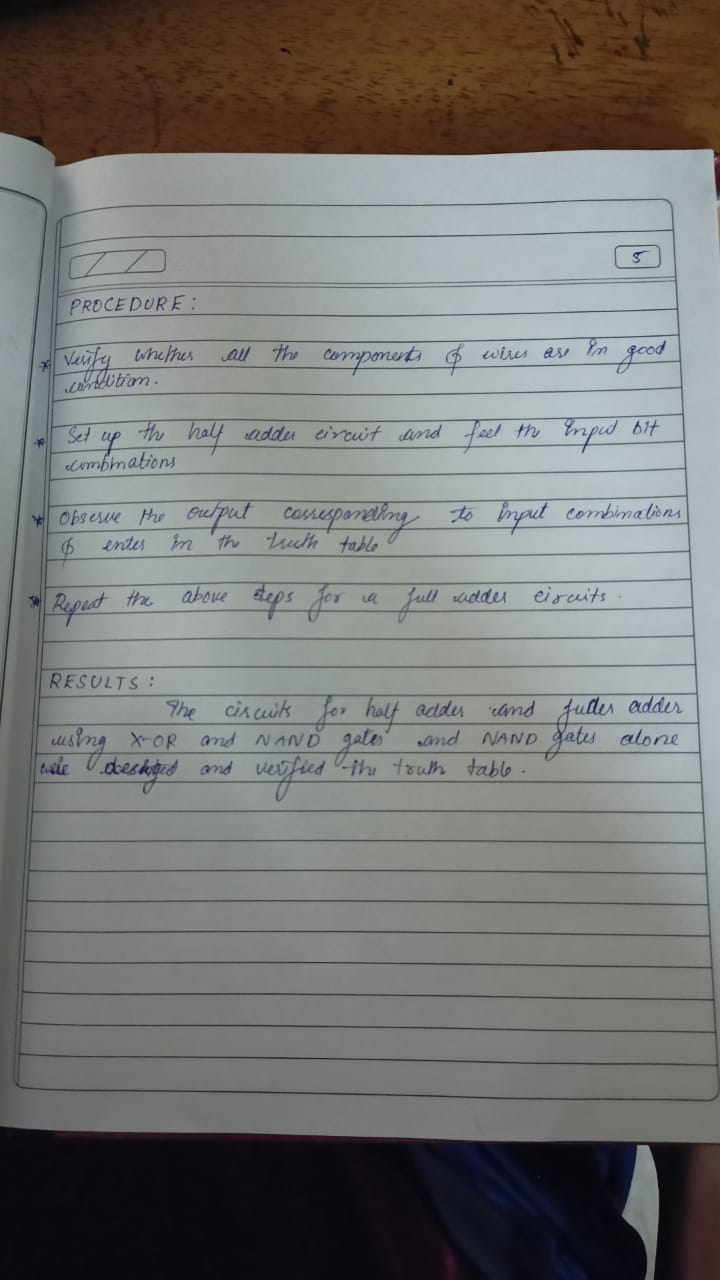 5
PROCEDURE :
* Verify whether all the components & wires are in good
condition.
* Set up the half adder circuit and feel the input bit
combinations
* Observe the output corresponding to input combinations
& enter in the truth table
* Repeat the above steps for a full adder circuits .
RESULTS :
The circuits for half adder and fuller adder
using X-OR and NAND gates and NAND gates alone
were and verified the truth table .